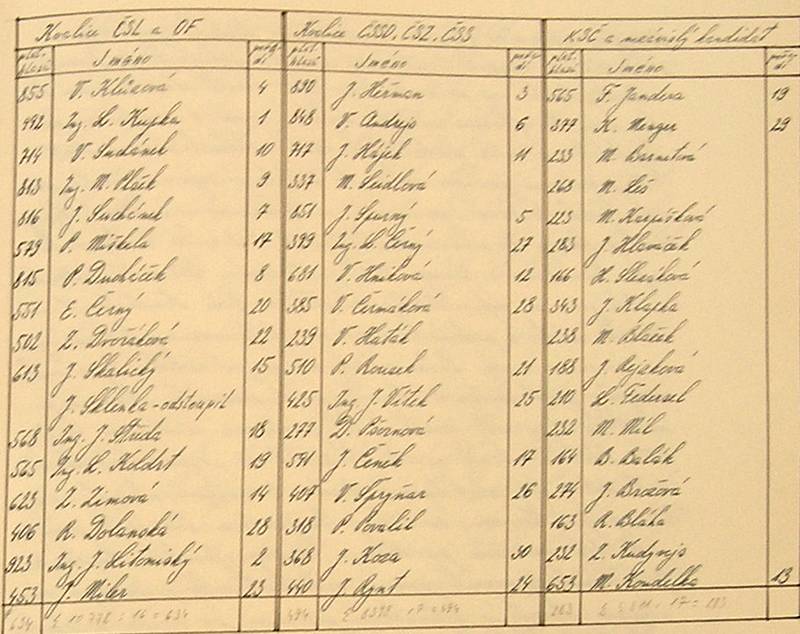 Koalice ČSL a OF Koalice ČSSD, ČSZ, ČSS KSČ a nezávislý kandidát
plat. hlasů Jméno pořadí plat. hlasů Jméno pořadí plat. hlasů Jméno pořadí
855 V. Klůzová 4 890 J. Heřman 3 565 F. Jandera 19
992 Ing. L. Kupka 1 848 V. Andrejs 6 377 K. Menger 29
714 V. Suchánek 10 717 J. Hájek 11 233 M. Barnetová
813 Ing. M. Plšek 9 337 M. Seidlová 268 M. Leš
816 J. Suchánek 7 851 J. Spurný 5 223 M. Karpíšková
579 P. Miškela 17 399 Ing. L. Černý 27 283 J. Hlaváček
815 P. Ducháček 8 681 V. Hniková 12 166 H. Slezáková
551 E. Černý 20 385 V. Čermáková 28 343 J. Klapka
502 Z. Dvořáková 22 239 V. Haták 238 M. Blažek
613 J. Skalický 15 510 P. Rousek 21 188 J. Rejzková
J. Sklenka - odstoupil 425 Ing. J. Vítek 25 210 L. Federsel
568 Ing. J. Středa 18 277 D. Pšornová 232 M. Mil
565 Ing. L. Koldrt 19 591 J. Čeněk 17 164 B. Balák
623 Z. Zimová 14 407 V. Spryňar 26 274 J. Brožová
406 R. Dolanská 28 318 P. Povalil 163 R. Bláha
923 Ing. J. Litomiský 2 368 J. Koza 30 232 Z. Kudyvejs
453 J. Miler 23 440 J. Rynt 24 653 M. Koudelka 13
634 Σ 10 778 : 16 = 634 494 Σ 8393 : 17 = 494 283 : 17 = 283